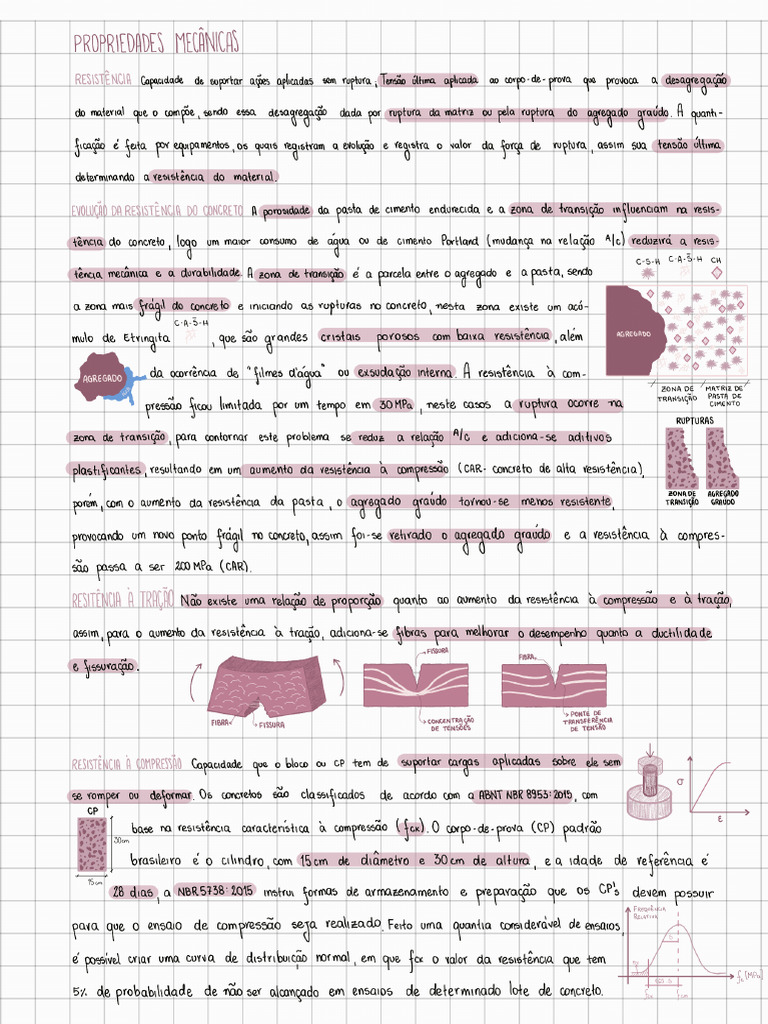 PROPRIEDADES MECÂNICAS
RESISTÊNCIA Capacidade de suportar ações aplicadas sem ruptura, Tensão última aplicada ao corpo-de-prova que provoca a desagregação
do material que o compõe, sendo essa desagregação dada por ruptura da matriz ou pela ruptura do agregado graúdo. A quanti-
ficação é feita por equipamentos, os quais registram a evolução e registra o valor da força de ruptura, assim sua tensão última
determinando a resistência do material.
EVOLUÇÃO DA RESISTÊNCIA DO CONCRETO A porosidade da pasta de cimento endurecida e a zona de transição influenciam na resis-
tência do concreto, logo um maior consumo de água ou de cimento Portland (mudança na relação A/c) reduzirá a resis-
tência mecânica e a durabilidade. A zona de transição é a parcela entre o agregado e a pasta, sendo
C-S-H C-A-S̄-H CH
a zona mais frágil do concreto e iniciando as rupturas no concreto, nesta zona existe um acú-
mulo de Etringita C-A-S̄-H, que são grandes cristais porosos com baixa resistência, além
AGREGADO
AGREGADO
da ocorrência de "filmes d'água" ou exsudação interna. A resistência à com-
ZONA DE TRANSIÇÃO
MATRIZ DE PASTA DE CIMENTO
pressão ficou limitada por um tempo em 30 MPa, neste casos a ruptura ocorre na
RUPTURAS
zona de transição, para contornar este problema se reduz a relação A/c e adiciona-se aditivos
plastificantes, resultando em um aumento da resistência à compressão (CAR- concreto de alta resistência),
ZONA DE TRANSIÇÃO
AGREGADO GRAÚDO
porém, com o aumento da resistência da pasta, o agregado graúdo tornou-se menos resistente,
provocando um novo ponto frágil no concreto, assim foi-se retirado o agregado graúdo e a resistência à compres-
são passa a ser 200 MPa (CAR).
RESITÊNCIA À TRAÇÃO Não existe uma relação de proporção quanto ao aumento da resistência à compressão e à tração,
assim, para o aumento da resistência à tração, adiciona-se fibras para melhorar o desempenho quanto a ductilidade
e fissuração.
FISSURA
FIBRA
FIBRA
FISSURA
CONCENTRAÇÃO DE TENSÕES
PONTE DE TRANSFERÊNCIA DE TENSÃO
RESISTÊNCIA À COMPRESSÃO Capacidade que o bloco ou CP tem de suportar cargas aplicadas sobre ele sem
se romper ou deformar. Os concretos são classificados de acordo com a ABNT NBR 8953:2015, com
σ
ε
CP
30cm
15cm
base na resistência característica à compressão (fck). O corpo-de-prova (CP) padrão
brasileiro é o cilindro, com 15 cm de diâmetro e 30 cm de altura, e a idade de referência é
28 dias, a NBR 5738:2015 instrui formas de armazenamento e preparação que os CP's devem possuir
para que o ensaio de compressão seja realizado. Feito uma quantia considerável de ensaios,
FREQUÊNCIA RELATIVA
é possível criar uma curva de distribuição normal, em que fck o valor da resistência que tem
5%
fc [MPa]
5% de probabilidade de não ser alcançado em ensaios de determinado lote de concreto.
fck
fcm